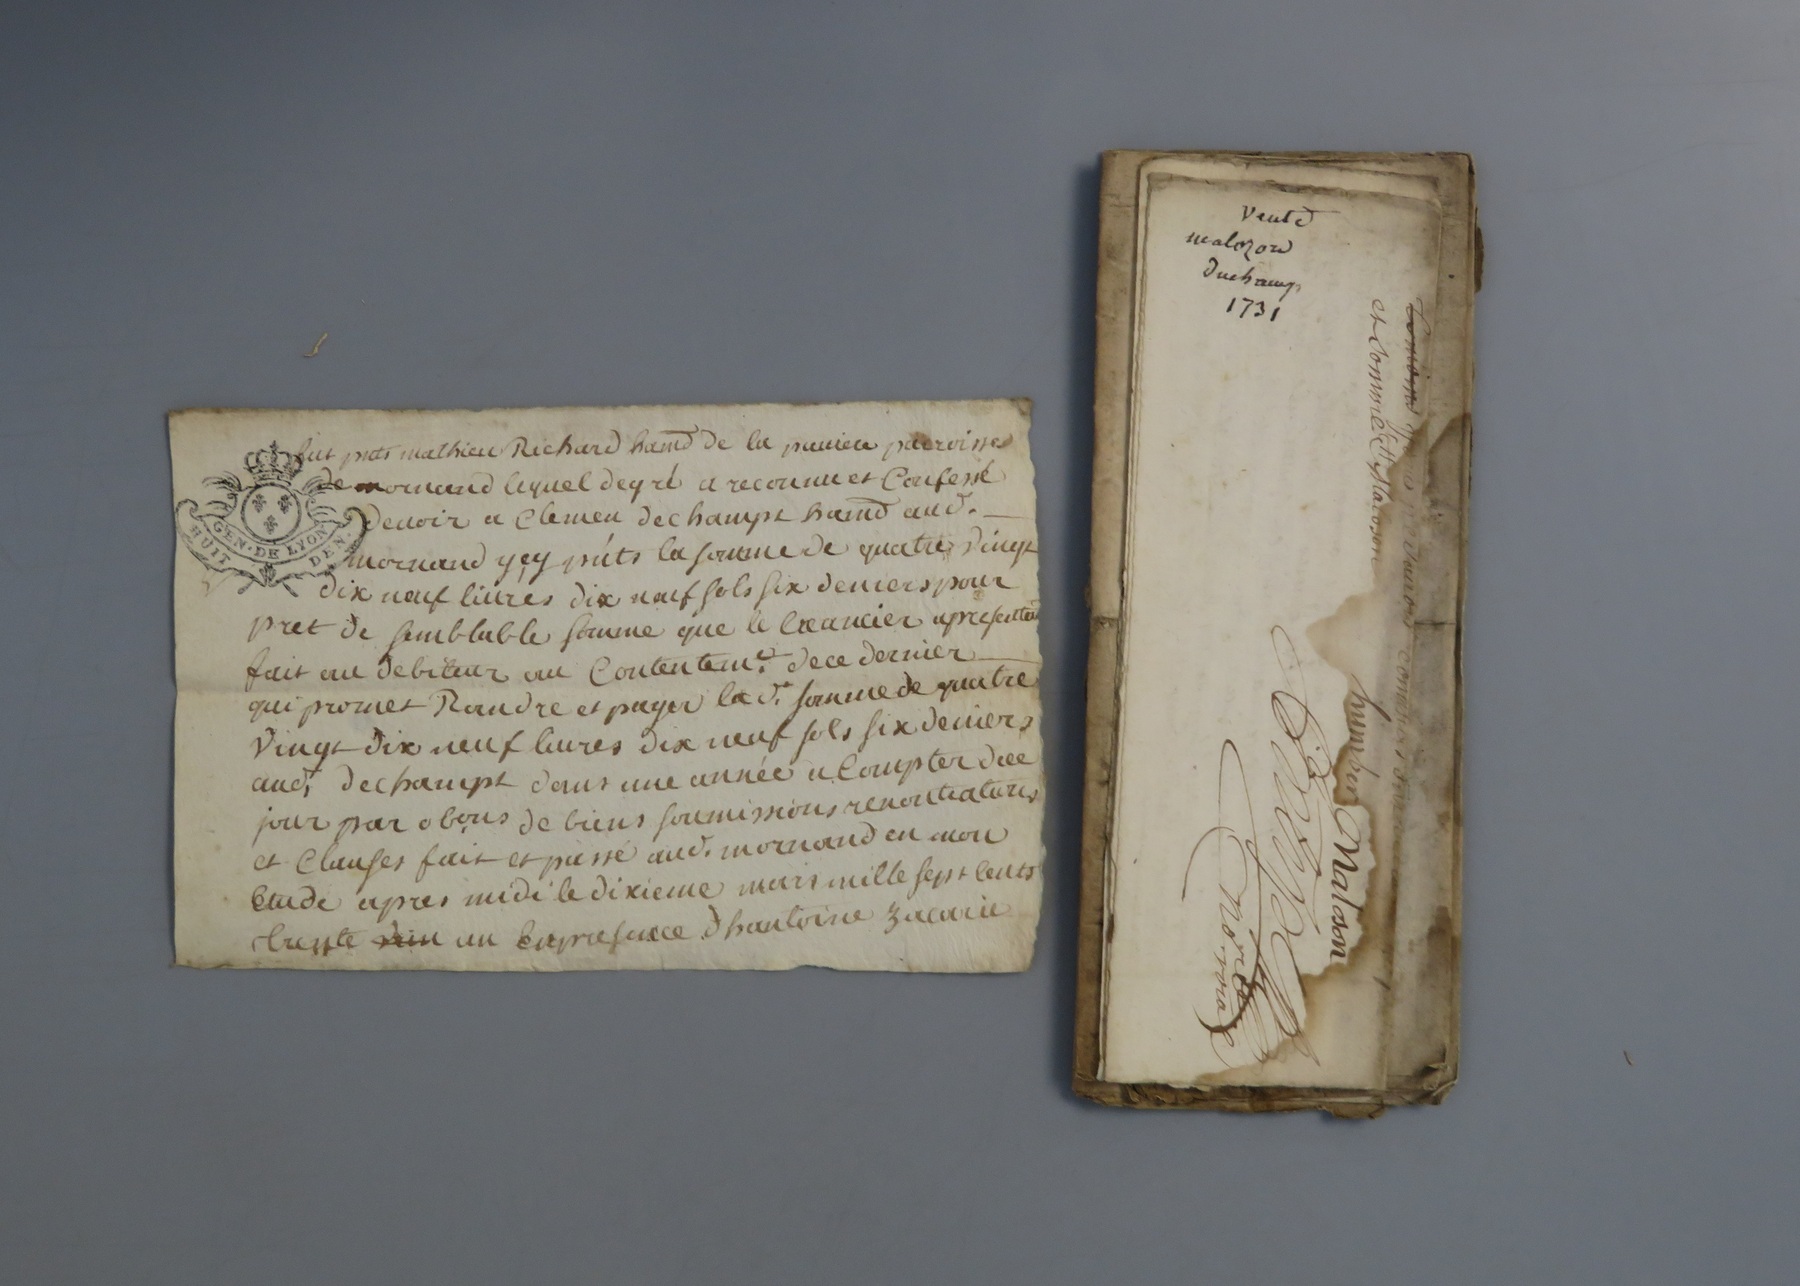 GEN. DE LYON
HUIT DEN.
fut pnts mathieu Richard habnt de la paroisse
de mornand lequel de gré a reconnu et Confessé
devoir a Clemen dechampt habnt aud.
mornand yey pnts la somme de quatre vingt
dix neuf livres dix neuf sols six deniers pour
pret de semblable somme que le Creancier a presentem
fait au debiteur au Contentemt. de ce dernier
qui promet Randre et payer lad. somme de quatre
vingt dix neuf livres dix neuf sols six deniers
aud. dechampt dans une année a Compter de ce
jour par obons de biens soumissions renontiatons
et Clauses fait et passé aud. mornand en mon
Etude apres midi le dixieme mars mille sept cents
trente un En presence d hantoine Zacarie
Vente
duchamp
1731
humber Malosson